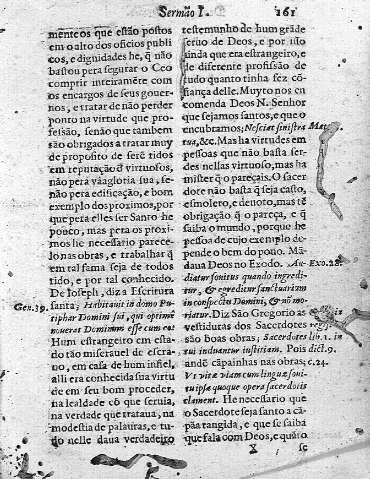 Sermão I.
161
mente os que estão postos
em o alto dos oficios publi
cos, e dignidades he, q̃ não
basta pera segurar o Ceo
comprir inteiramẽte com
os encargos de seus gouer-
nos, e tratar de não perder
ponto na virtude que pro-
fessão, senão que tambem
são obrigados a tratar muy
de proposito de serẽ tidos
em reputação d̃ virtuosos,
não pera vãa gloria sua, se-
não pera edificação, e bom
exemplo dos proximos, por
que pera elles ser Santo he
pouco, mas pera os proxi-
mos he necessario parece-
lo nas obras, e trabalhar q̃
em tal fama seja de todos
tido, e por tal conhecido.
De Ioseph, diz a Escritura
Gen. 39.
santa; Habitauit in domo Pu-
tiphar Domini sui, qui optimè
nouerat Dominum esse cum eo:
Hum estrangeiro em esta-
do tão miserauel de escra-
uo, em casa de hum infiel,
alli era conhecida sua virtu
de em seu bom proceder,
na lealdade cõ que seruia,
na verdade que trataua, na
modestia de palauras, e tu-
do nelle daua verdadeiro
testemunho de hum grãde
seruo de Deos, e por isso
ainda que era estrangeiro, e
de diferente profissão de
tudo quanto tinha fez cõ-
fiança delle. Muyto nos en
comenda Deos N. Senhor
que sejamos santos, e que o
encubramos; Nesciat sinistra
tua, &c. Mas ha virtudes em
pessoas que não basta ser-
des nellas virtuoso, mas ha
mister q̃ o pareçais. O sacer
dote não basta q̃ seja casto,
esmolero, e deuoto, mas tẽ
obrigação q̃ o pareça, e q̃
saiba o mundo, porque he
pessoa de cujo exemplo de-
pende o bem do pouo. Mã-
daua Deos no Exodo. Au-
Exo. 28.
diatur sonitus quando ingredi-
tur, & egreditur sanctuarium
in conspectu Domini, & nõ mo-
riatur. Diz São Gregorio as
vestiduras dos Sacerdotes
são boas obras; Sacerdotes
lib. 1. in
tui induantur iustitiam. Pois
andẽ cãpainhas nas obras;
c. 24.
Vt vitæ viam cum linguæ soni-
tu ipsa quoque opera sacerdotis
clament. He necessario que
o Sacerdote seja santo a cã-
pãa tangida, e que se saiba
que fala com Deos, e quãto
X
se